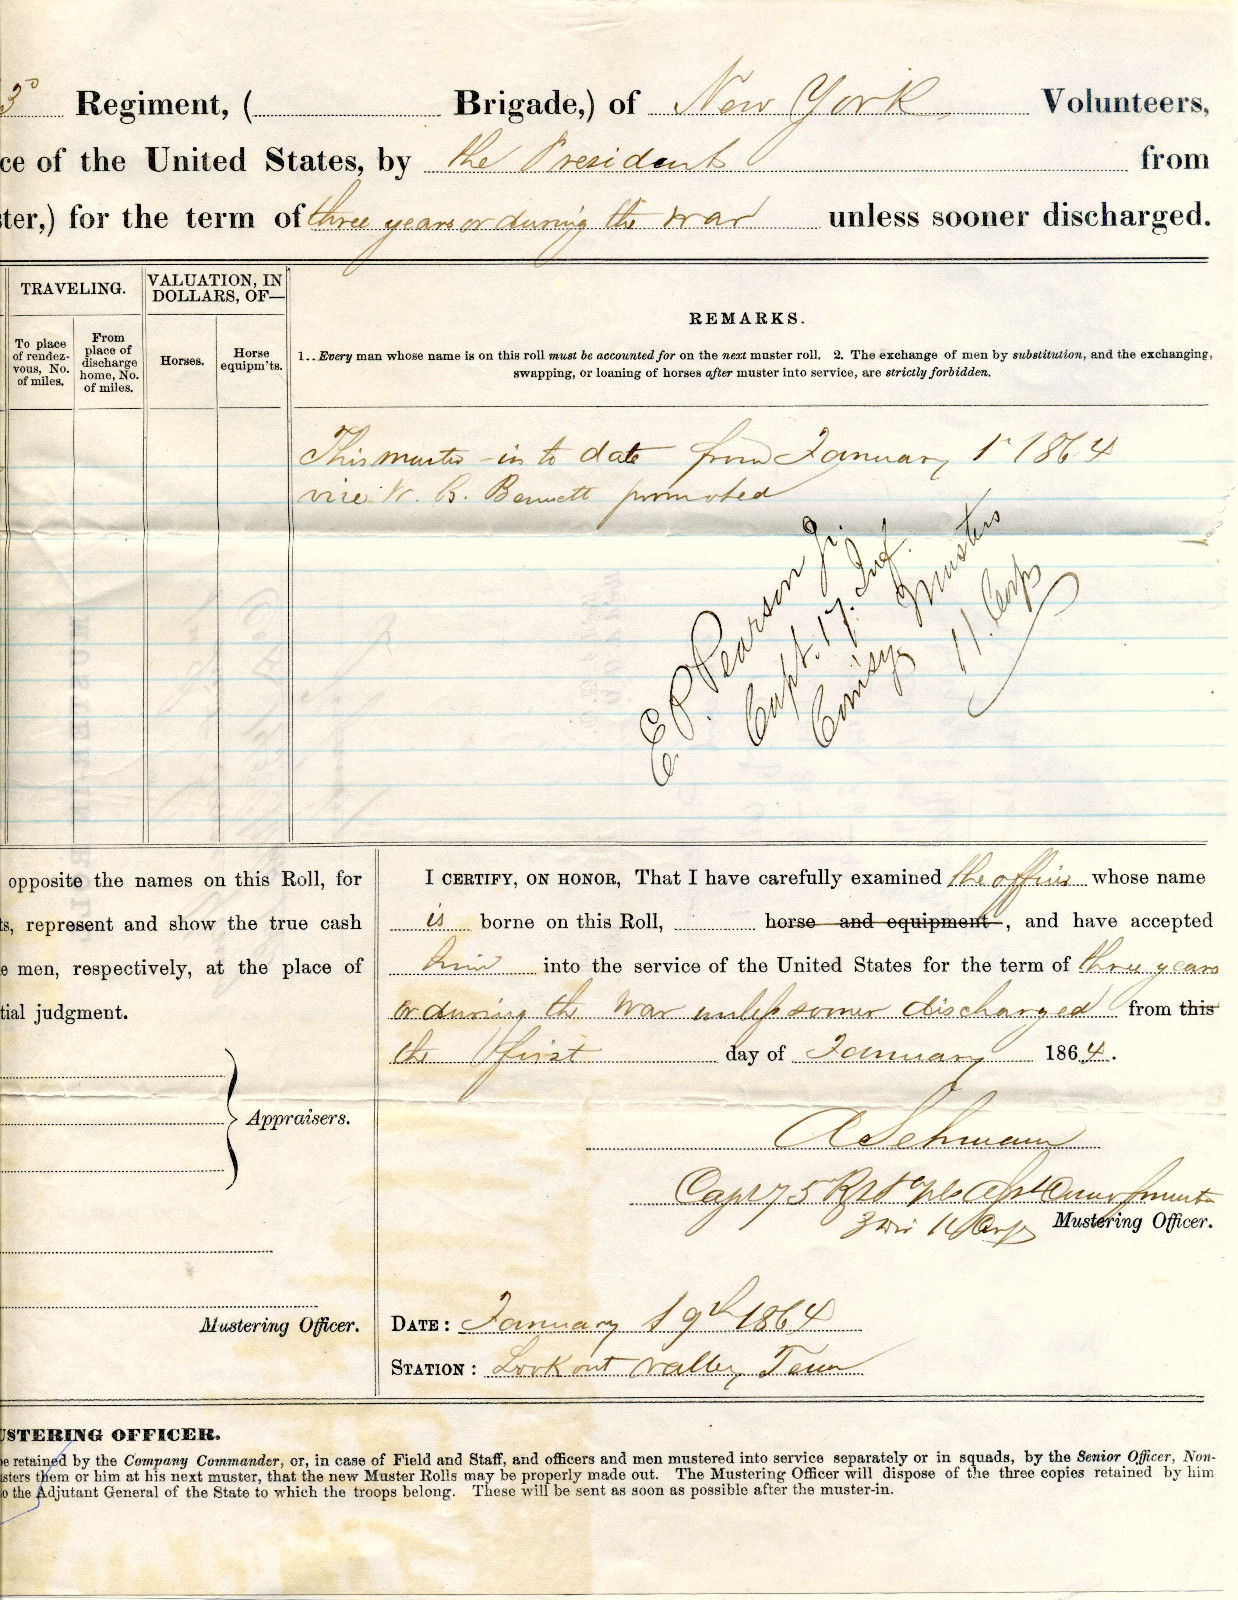 3d Regiment, ( Brigade,) of New York Volunteers,
ce of the United States, by the President from
ster,) for the term of three years or during the war unless sooner discharged.
TRAVELING.
VALUATION, IN DOLLARS, OF—
To place of rendez-vous, No. of miles.
From place of discharge home, No. of miles.
Horses.
Horse equipm'ts.
REMARKS.
1.. Every man whose name is on this roll must be accounted for on the next muster roll. 2. The exchange of men by substitution, and the exchanging,
swapping, or loaning of horses after muster into service, are strictly forbidden.
This muster-in to date from January 1st 1864
vice W. B. Bennett promoted
E. P. Pearson Jr.
Capt. 17. Inf.
Comisy Musters
11. Corps
opposite the names on this Roll, for
ts, represent and show the true cash
e men, respectively, at the place of
tial judgment.
Appraisers.
Mustering Officer.
I CERTIFY, ON HONOR, That I have carefully examined the officer whose name
is borne on this Roll, horse and equipment, and have accepted
him into the service of the United States for the term of three years
or during the war unless sooner discharged from this
the first day of January 1864.
Capt 75
3 Div 11 Corps Mustering Officer.
DATE: January 19th 1864
STATION: Lookout Valley Tenn
USTERING OFFICER.
e retained by the Company Commander, or, in case of Field and Staff, and officers and men mustered into service separately or in squads, by the Senior Officer, Non-
sters them or him at his next muster, that the new Muster Rolls may be properly made out. The Mustering Officer will dispose of the three copies retained by him
o the Adjutant General of the State to which the troops belong. These will be sent as soon as possible after the muster-in.